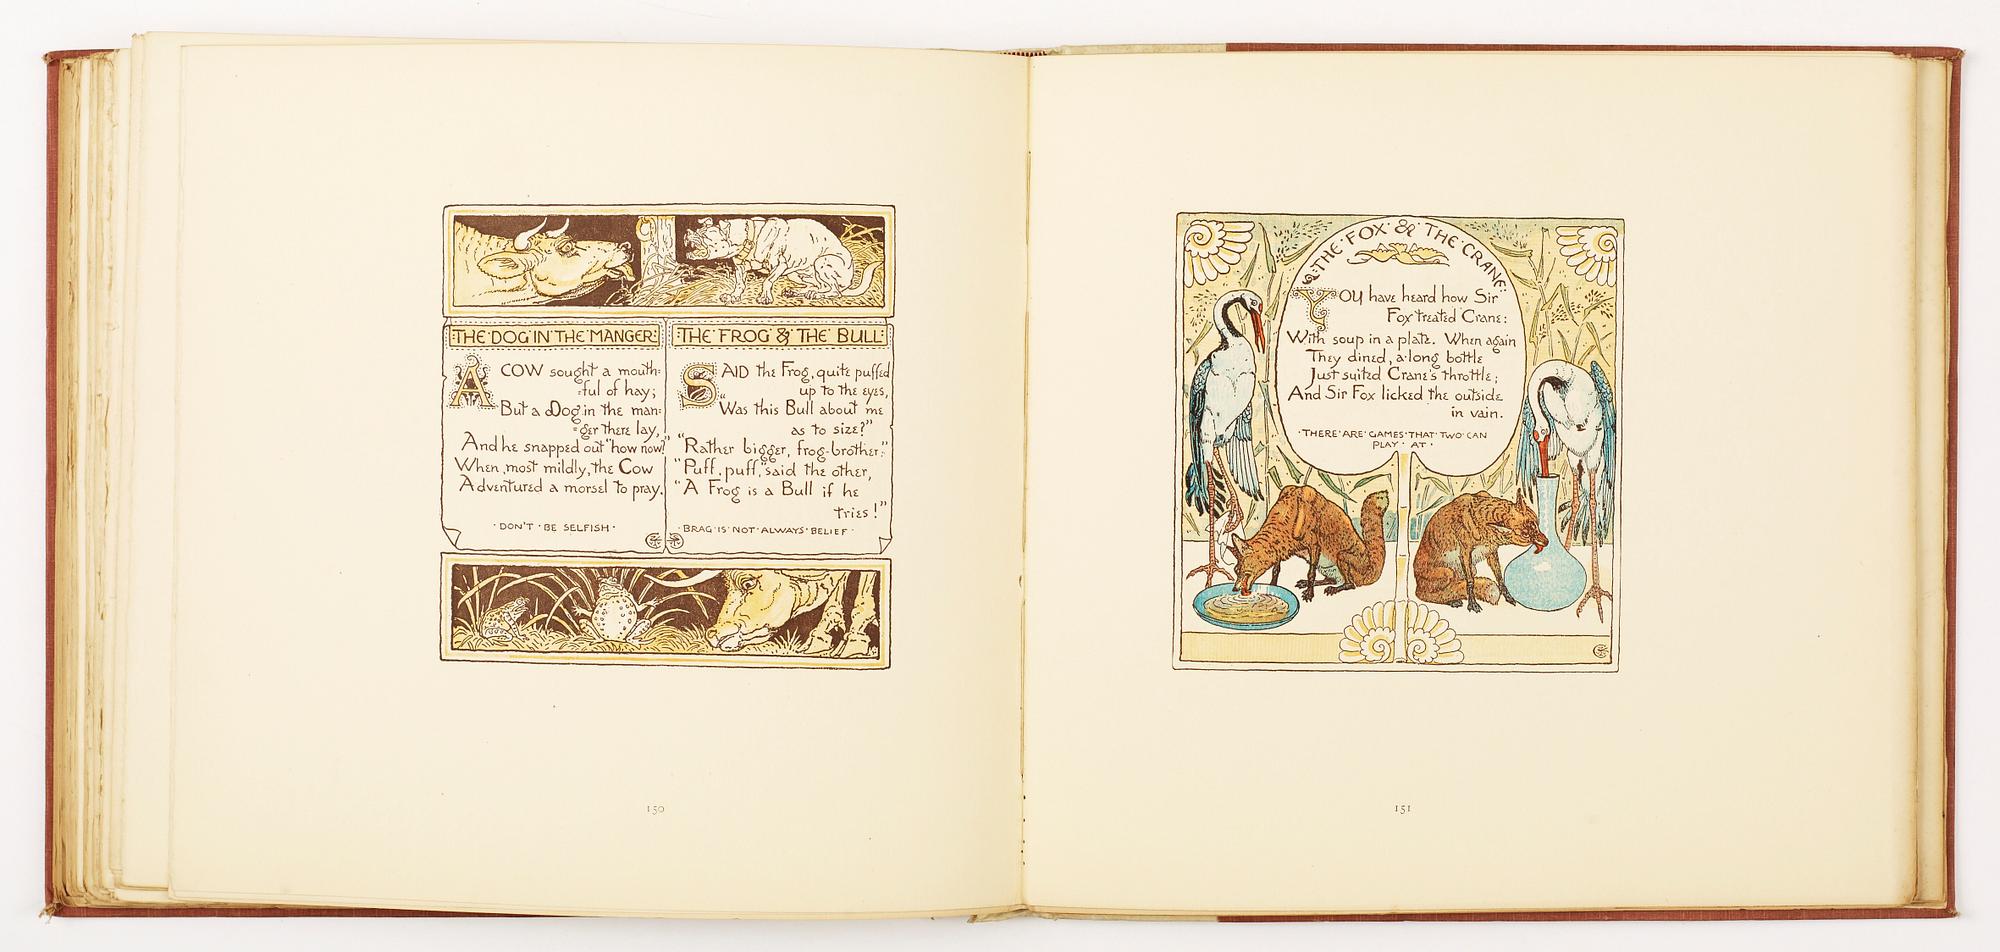 THE DOG IN THE MANGER
A COW sought a mouth-
-ful of hay;
But a Dog in the man-
-ger there lay,
And he snapped out "how now?"
When, most mildly, the Cow
Adventured a morsel to pray.
DON'T BE SELFISH
THE FROG & THE BULL
SAID the Frog, quite puffed
up to the eyes,
"Was this Bull about me
as to size?"
"Rather bigger, frog-brother."
"Puff, puff," said the other,
"A Frog is a Bull if he
tries!"
BRAG IS NOT ALWAYS BELIEF
150
THE FOX & THE CRANE
YOU have heard how Sir
Fox treated Crane:
With soup in a plate. When again
They dined, a long bottle
Just suited Crane's throttle;
And Sir Fox licked the outside
in vain.
THERE ARE GAMES THAT TWO CAN
PLAY AT
151